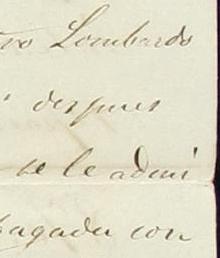 ro Lombardo
despues
se le admi
pagada con